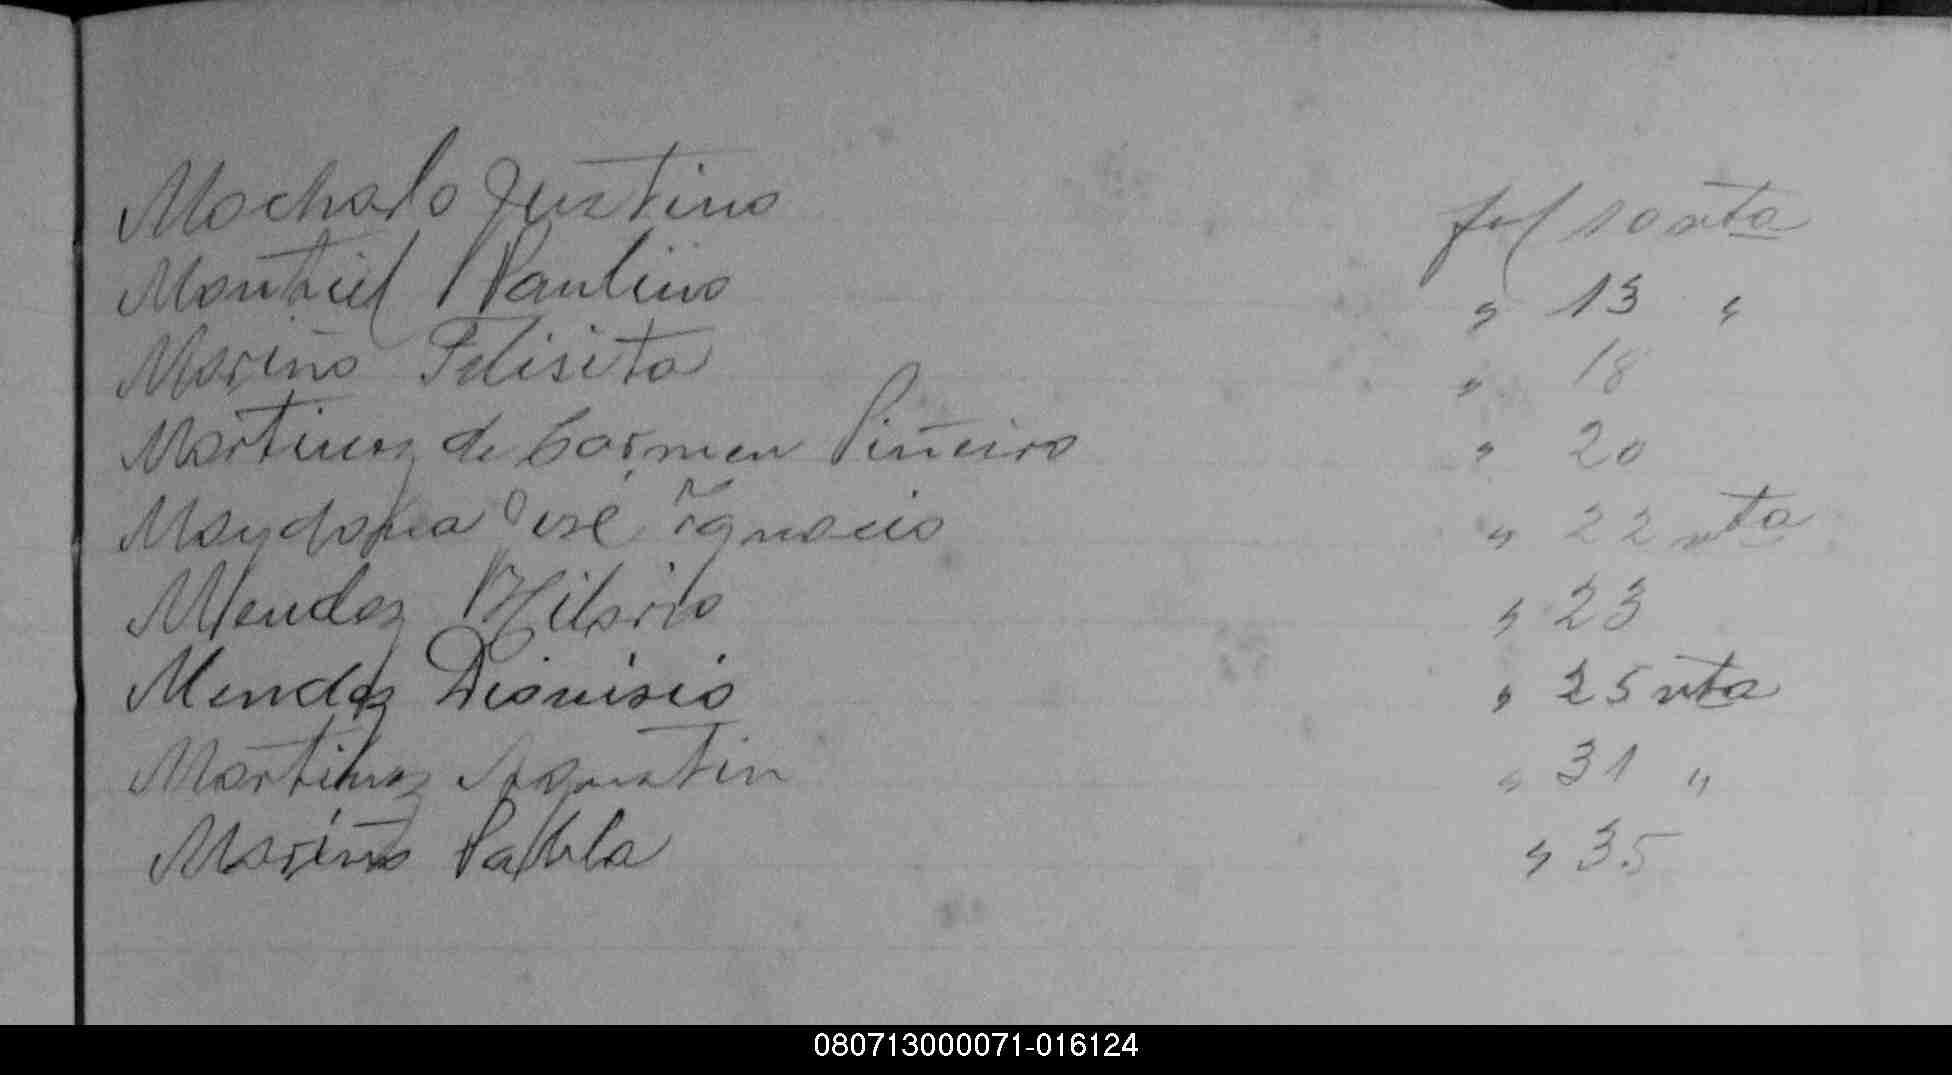 Machado Justino fol 10 vta
Montiel Paulino " 13 "
Mariño Felisita " 18
Martinez de Carmen Piñeiro " 20
José Ignacio " 22 vta
Mendez Hilario " 23
Mendez Dionisio " 25 vta
Martinez Agustin " 31 "
Mariño Pabla " 35
080713000071-016124